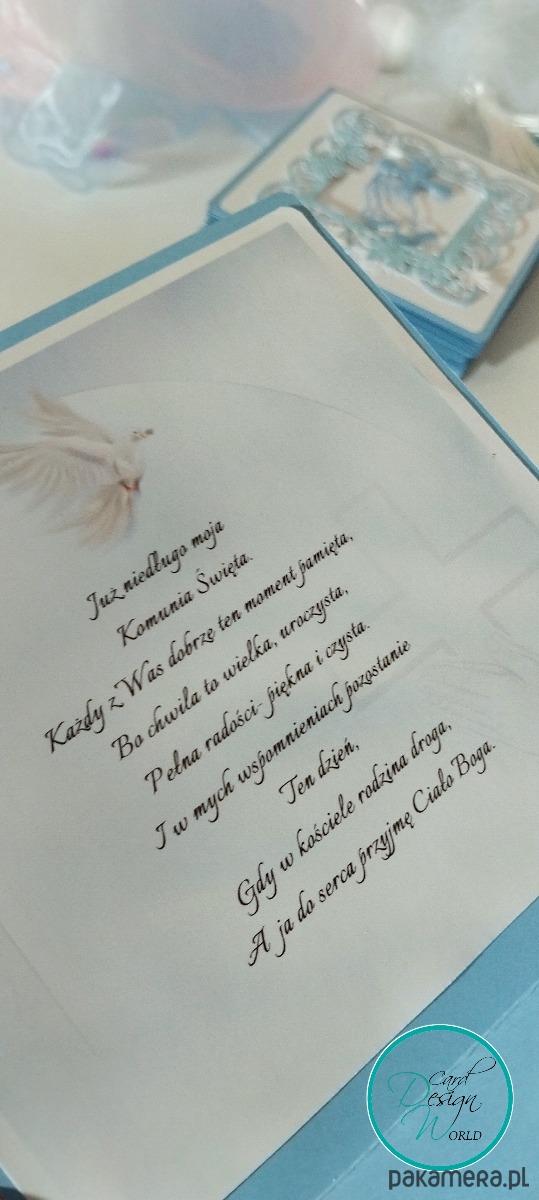 Już niedługo moja
Komunia Święta.
Każdy z Was dobrzę ten moment pamięta,
Bo chwila to wielka, uroczysta,
Pełna radości- piękna i czysta.
I w mych wspomnieniach pozostanie
Ten dzień,
Gdy w kościele rodzina droga,
A ja do serca przyjmę Ciało Boga.
Card
Design
World
pakamera.pl